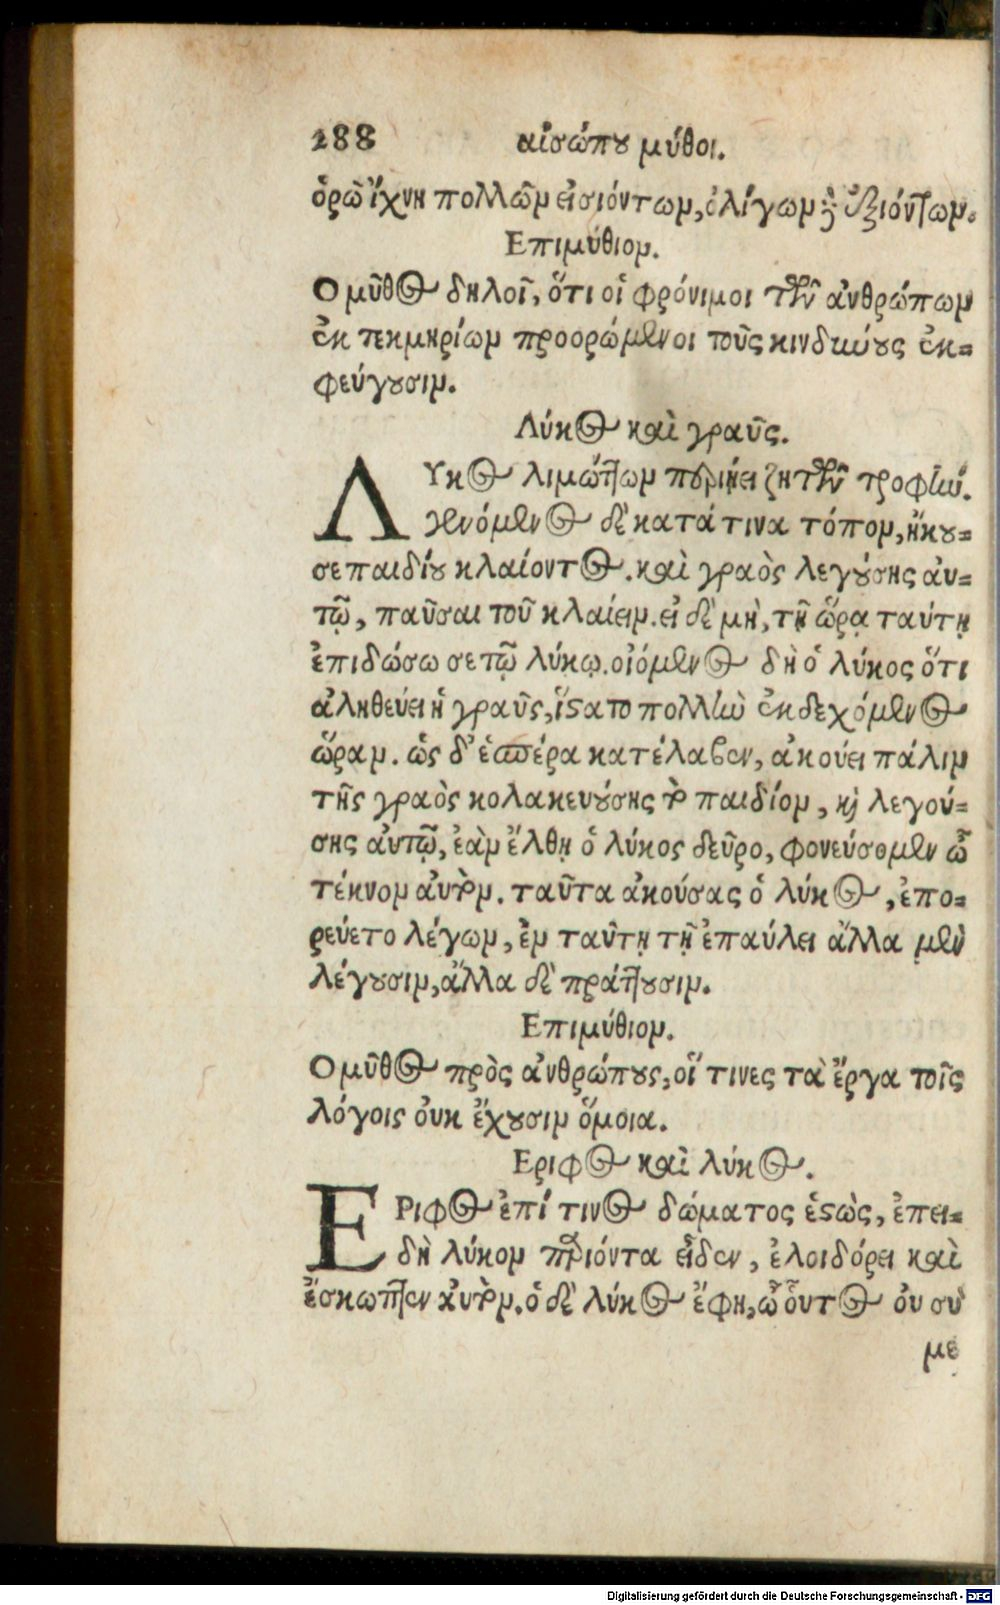 288 αἰσώπου μύθοι.
ὁρῶ ἴχνη πολλῶν εἰσιόντων, ὀλίγων δὲ ἐξιόντων.
Επιμύθιον.
Ο μῦθος δηλοῖ, ὅτι οἱ φρόνιμοι τῶν ἀνθρώπων
ἐκ τεκμηρίων προορώμενοι τοὺς κινδύνους ἐκ=
φεύγουσιν.
Λύκος καὶ γραῦς.
ΛΥκος λιμώττων περιῄει ζητῶν τροφὴν.
γενόμενος δὲ κατά τινα τόπον, ἤκου=
σε παιδίου κλαίοντος. καὶ γραὸς λεγούσης αὐ=
τῷ, παῦσαι τοῦ κλαίειν. εἰ δὲ μὴ, τῇ ὥρᾳ ταύτῃ
ἐπιδώσω σε τῷ λύκῳ. οἰόμενος δὴ ὁ λύκος ὅτι
ἀληθεύει ἡ γραῦς, ἵστατο πολλὴν ἐκδεχόμενος
ὥραν. ὡς δ᾽ ἑσπέρα κατέλαβεν, ἀκούει πάλιν
τῆς γραὸς κολακευούσης τὸ παιδίον, καὶ λεγού=
σης αὐτῷ, ἐὰν ἔλθῃ ὁ λύκος δεῦρο, φονεύσομεν ὦ
τέκνον αὐτόν. ταῦτα ἀκούσας ὁ λύκος, ἐπο=
ρεύετο λέγων, ἐν ταύτῃ τῇ ἐπαύλει ἄλλα μὲν
λέγουσιν, ἄλλα δὲ πράττουσιν.
Επιμύθιον.
Ο μῦθος πρὸς ἀνθρώπους, οἵ τινες τὰ ἔργα τοῖς
λόγοις οὐκ ἔχουσιν ὅμοια.
Εριφος καὶ λύκος.
ΕΡιφος ἐπί τινος δώματος ἑστὼς, ἐπει=
δὴ λύκον παριόντα εἶδεν, ἐλοιδόρει καὶ
ἔσκωπτεν αὐτόν. ὁ δὲ λύκος ἔφη, ὦ οὗτος οὐ σύ
με
Digitalisierung gefördert durch die Deutsche Forschungsgemeinschaft - DFG